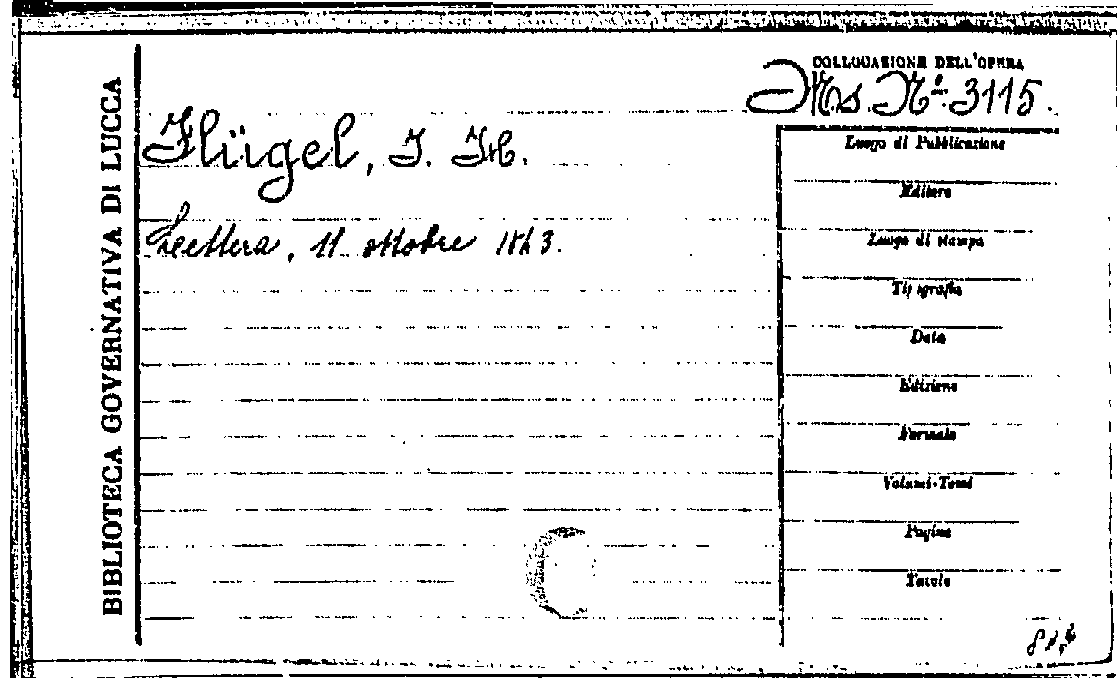 BIBLIOTECA GOVERNATIVA DI LUCCA
COLLOCAZIONE DELL'OPERA
Ms. Nº. 3115.
Flügel, J. H.
Lettera, 11 ottobre 1843.
Luogo di Pubblicazione
Editore
Luogo di stampa
Tipografia
Data
Edizione
Formato
Volumi-Tomi
Pagine
Tavole